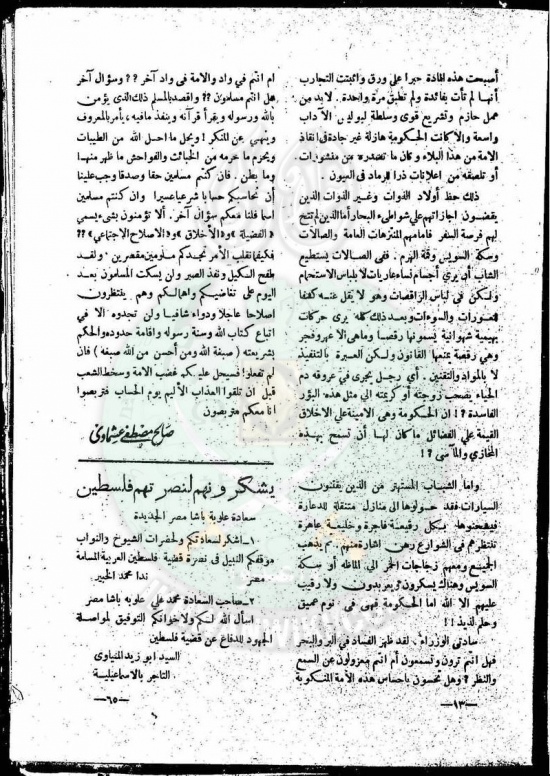 أصبحت هذه المادة حبرا على ورق واثبتت التجارب
أنها لم تأت بفائدة ولم تطبق مرة واحدة. لابد من
عمل حازم وتشريع قوى وسلطة لبوليس الآداب
واسعة والا كانت الحكومة هازلة غير جادة فى انقاذ
الامة من هذا البلاء وكان ما تصدره من منشورات
أو تلصقه من اعلانات ذرا للرماد فى العيون.
ذلك حظ أولاد الذوات وغير الذوات الذين
يقضون اجازاتهم على شواطىء البحار أما الذين لم تتح
لهم فرصة السفر فأمامهم المتنزهات العامة والصالات
وسكة السويس وقمة الهرم. ففى الصالات يستطيع
الشاب أن يرى أجسام نساء عاريات لا بلباس الاستحمام
ولكن فى لباس الراقصات وهو لا يقل عنه كشفا
للعورات والسوءات وبعد ذلك كله يرى حركات
بهيمية شهوانية يسمونها رقصا وماهى الا عهر وفجر
وهى رقصة يمنعها القانون ولكن العبرة بالتنفيذ
لا بالمواد والتقنين. أى رجل يجرى فى عروقه دم
الحياء يصحب زوجته أو كريمته الى مثل هذه البؤر
الفاسدة ?! ان الحكومة وهى الامينة على الاخلاق
القيمة على الفضائل ما كان لها أن تسمح بهذه
المخازي والمآسى ?!
واما الشباب المستهتر من الذين يقتنون
السيارات فقد حولوها الى منازل متنقلة للدعارة
فيشحنوها بكل رقيعة فاجرة وخليعة عاهرة
تنتظرهم فى الشوارع رهن اشارتهم ثم يذهب
الجميع ومعهم زجاجات الخمر الى الماظه أو سكة
السويس وهناك يسكرون ثم يعربدون ولا رقيب
عليهم الا الله اما الحكومة فهى فى نوم عميق
وحلم لذيذ !!
سادتى الوزراء. لقد ظهر الفساد فى البر والبحر
فهل انتم ترون وتسمعون أم انتم معزولون عن السمع
والنظر ? وهل تحسون باحساس هذه الأمة المنكوبة
—١٣—
ام انتم في واد والامة فى واد آخر ?? وسؤال آخر
هل انتم مسلمون ?? واقصد بالمسلم ذلك الذى يؤمن
بالله ورسوله ويقرأ قرآنه وينفذ مافيه، يأمر بالمعروف
وينهى عن المنكر ! ويحل ما احل الله من الطيبات
ويحرم ما حرمه من الخبائث والفواحش ما ظهر منها
وما بطن. فان كنتم مسلمين حقا وصدقا وجب علينا
أن نحاسبكم حسابا شرعيا عسيرا وان كنتم مسلمين
اسما فلنا معكم سؤال آخر. ألا تؤمنون بشىء يسمى
«الفضيلة» و«الأخلاق» و«الاصلاح الاجتماعى» ??
فكيفما نقلب الأمر نجدكم ملومين مقصرين. ولقد
طفح الكيل ونفذ الصبر ولن يسكت المسلمون بعد
اليوم على تغاضيكم واهمالكم وهم ينتظرون
اصلاحا عاجلا ودواء شافيا ولن تجدوه الا فى
اتباع كتاب الله وسنة رسوله واقامة حدوده والحكم
بشريعته ( صبغة الله ومن أحسن من الله صبغه ) فان
لم تفعلوا فسيحل عليكم غضب الامة وسخط الشعب
قبل ان تلقوا العذاب الأليم يوم الحساب فتربصوا
انا معكم متربصون
صالح مصطفى عشماوى
يشكرونهم لنصرتهم فلسطين
سعادة علوبة باشا مصر الجديدة
١ـ اشكر لسعادتكم ولحضرات الشيوخ والنواب
موقفكم النبيل فى نصرة قضية فلسطين العربية المسلمة
مصر ندا محمد الخبير
٢ـ صاحب السعادة محمد على علوبه باشا مصر
اسأل الله لكم ولاخوانكم التوفيق لمواصلة
الجهود للدفاع عن قضية فلسطين
السيد ابو زيد المنياوى
التاجر بالاسماعيلية
—٦٥—